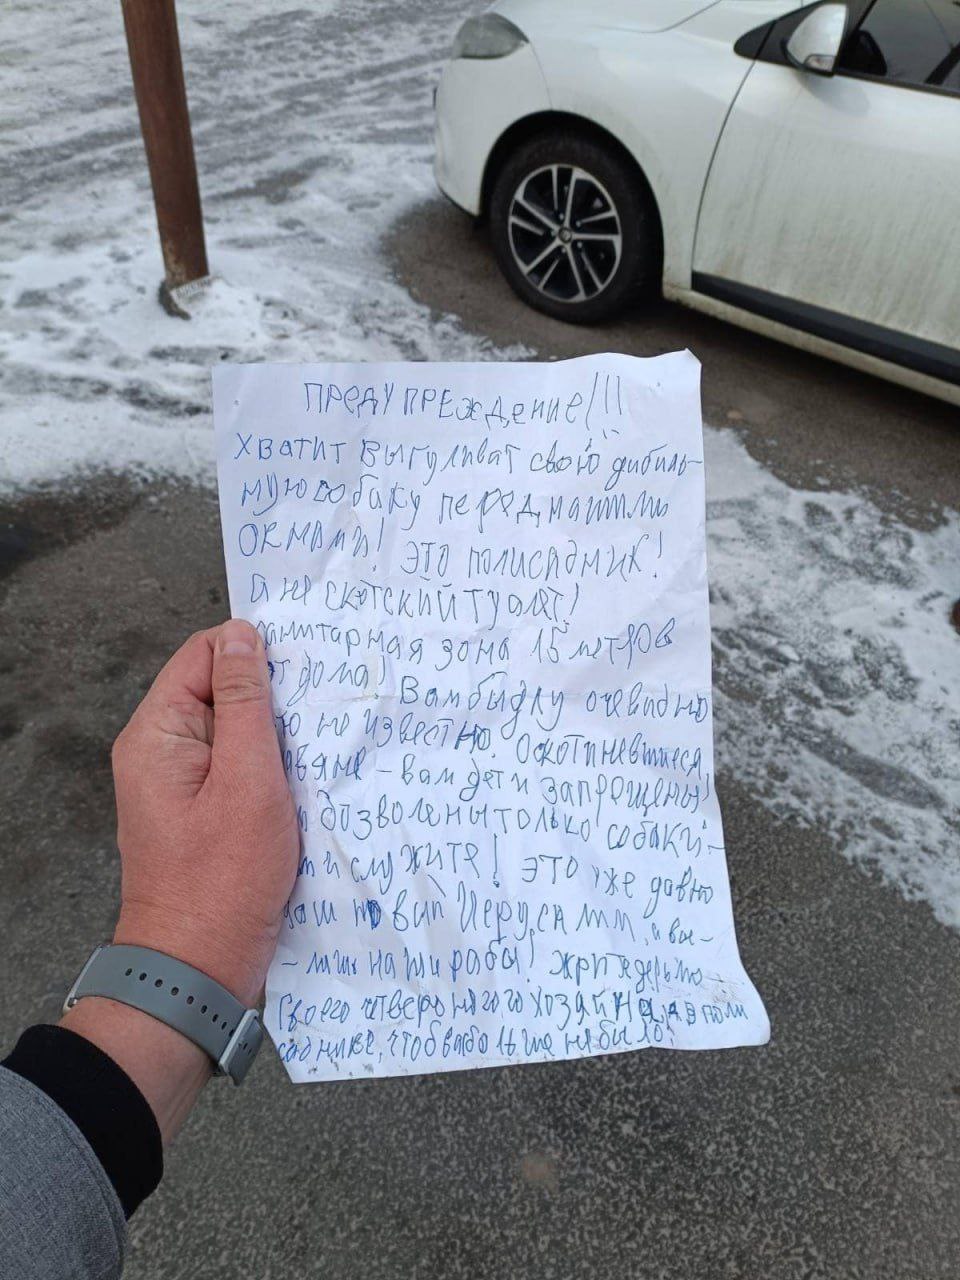 ПРЕДУПРЕЖДЕНИЕ!!!
ХВАТИТ ВЫГУЛИВАТ СВОЮ ДИБИЛЬ-
НУЮ СОБАКУ ПЕРЕД НАШИМИ
ОКНАМИ! ЭТО ПОЛИСАДНИК!
А НЕ СКОТСКИЙ ТУАЛЕТ!
АНИТАРНАЯ ЗОНА 15 МЕТРОВ
ОТ ДОМА! ВАМ БЫДЛУ ОЧЕВИДНО
НЕ ИЗВЕСТНО. ОСКОТИНЕВШИЕСЯ,
АВЯНЕ - ВАМ ДЕТИ ЗАПРЕЩЕНЫ!
ДОЗВОЛЕНЫ ТОЛЬКО СОБАКИ -
М И СЛУЖИТЕ! ЭТО УЖЕ ДАВНО
НАШ НОВЫЙ ИЕРУСАЛИМ, А ВЫ -
- ЛИШЬ НАШИ РАБЫ! ЖРИТЕ ДЕРЬМО
СВОЕГО ЧЕТВЕРОНОГОГО ХОЗАЙНА В ПОЛИ
САДНИКЕ, ЧТОБ ЕГО БОЛЬШЕ НЕ БЫЛО.